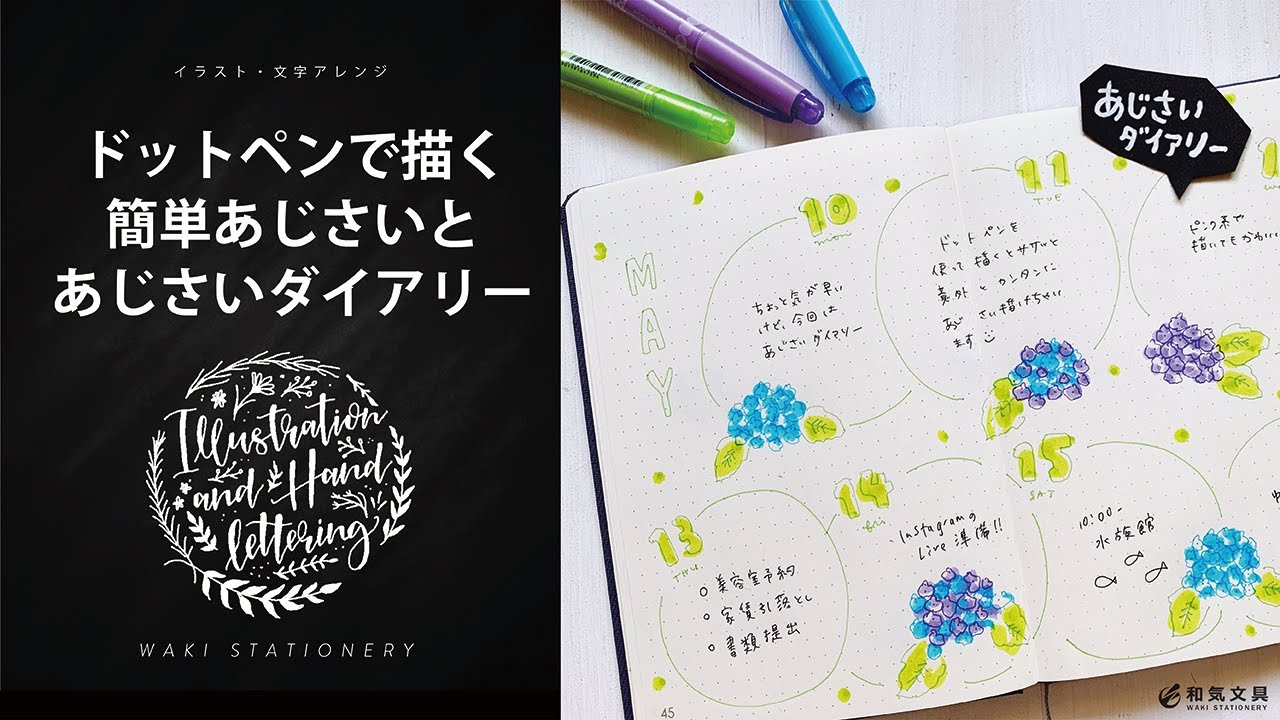 イラスト・文字アレンジ
ドットペンで描く
簡単あじさいと
あじさいダイアリー
Illustration
and Hand
lettering
WAKI STATIONERY
あじさい
ダイアリー
MAY
10
mon
ちょっと気が早い
けど、今回は
あじさいダイアリー
11
TUE
ドットペンを
使って描くとササッと
意外とカンタンに
あじさい描けちゃい
ます
ピンク系で
描いてもかわいい
13
THU
美容室予約
家賃引落とし
書類提出
14
fri
Instagramの
Live準備!!
15
SAT
10:00-
水族館
45
和気文具
WAKI STATIONERY